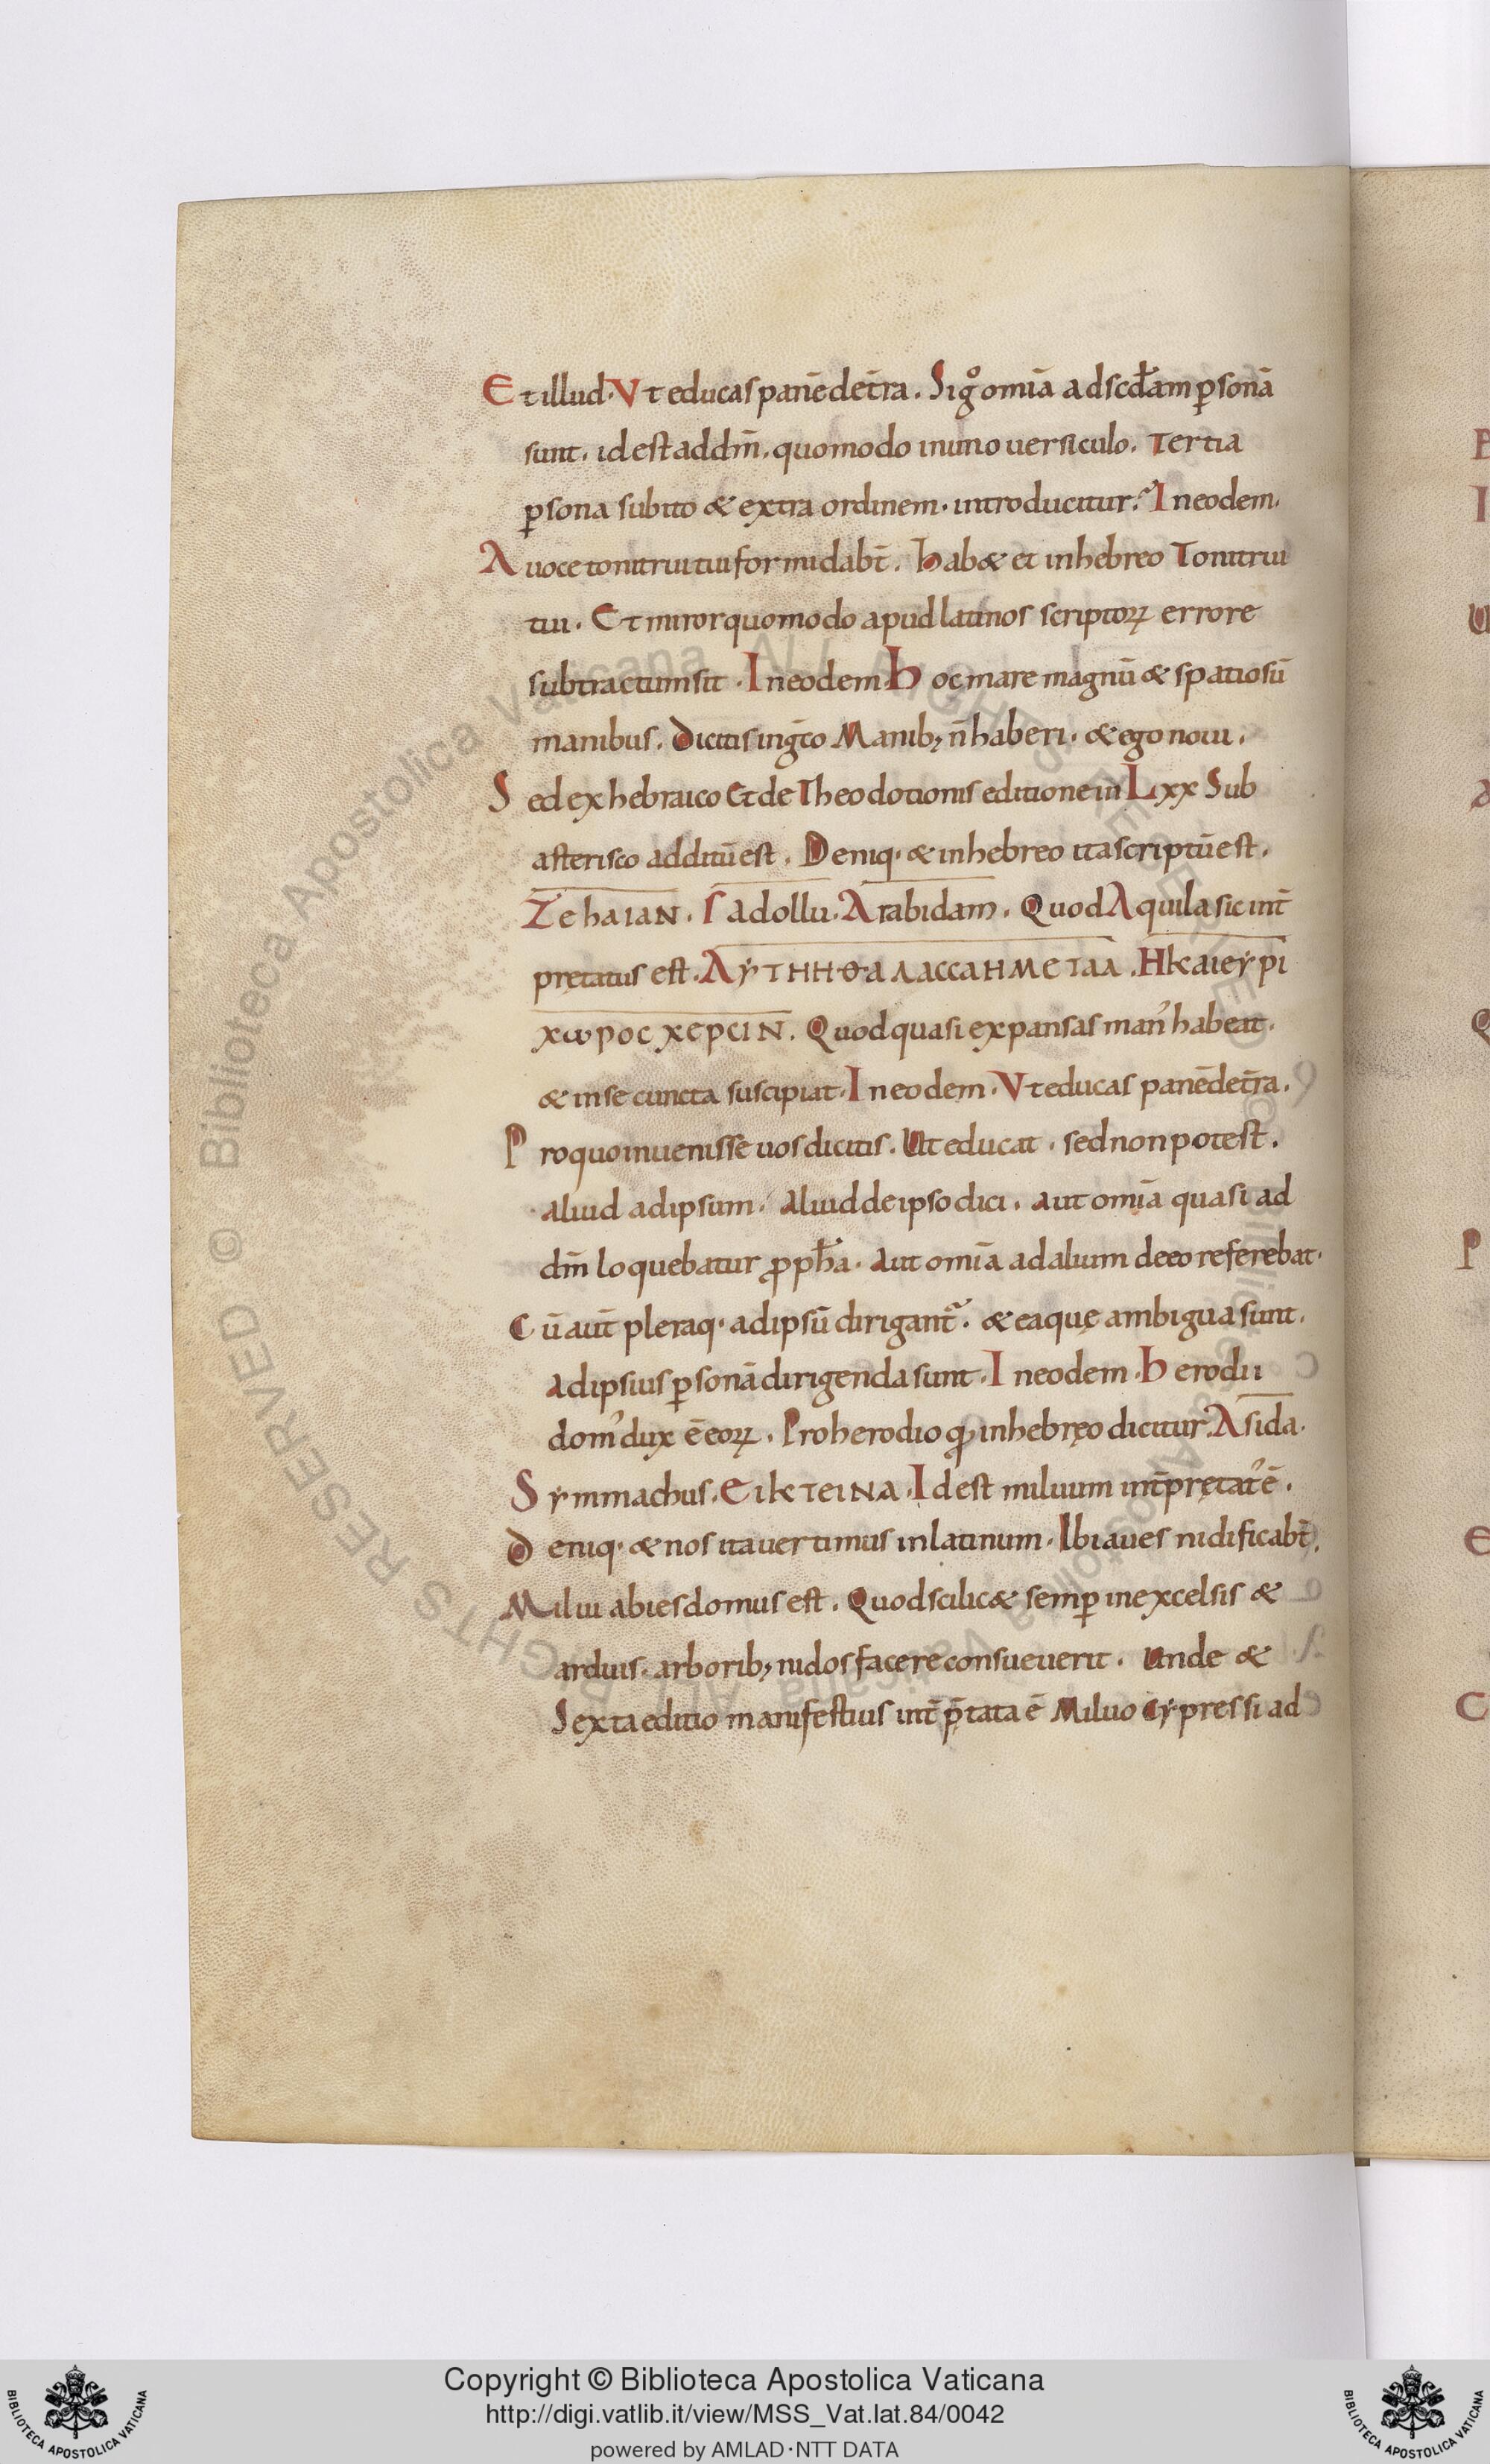 Et illud· Vt educas panē de tr̄a. Sig̊ omīa ad scd̄am p̱sonā
sunt. id est ad dm̄. quomodo in uno uersiculo. Tertia
p̱sona subito & extra ordinem· introducitur. In eodem.
A uoce tonitrui tui formidab̄t. hab& et in hebreo Tonitrui
tui. Et miror quomodo apud latinos scriptoꝝ errore
subtractum sit. In eodem. Hoc mare magnū & spatiosū
manibus. Dicitis in gr̄co Manibꝫ n̄ haberi. & ego noui.
Sed ex hebraico Et de Theodotionis editione in Lxx Sub
asterisco additū est. Deniq· & in hebreo ita scriptū est.
Zehaian. Gadollu. Arabidam. Quod Aquila sic int̄
pretatus est. ΑΥΤΗ Η ΘΑΛΑCCΑ Η ΜΕΓΑΛ. Η ΚΑΙ ΕΥΡΙ
ΧωΡΟC ΧΕΡCΙΝ. Quod quasi expansas man᾽ habeat.
& in se cuncta suscipiat. In eodem. Vt educas panē de tr̄a.
Pro quo inuenisse uos dicitis. Ut educat. sed non potest.
aliud ad ipsum. aliud de ipso dici. aut omīa quasi ad
dm̄ loquebatur ꝓph̄a. aut omīa ad alium de eo referebat.
Cū aut̄ pleraq· ad ipsū dirigant̄. & ea quę ambigua sunt.
ad ipsius p̱sonā dirigenda sunt. In eodem. Herodii
dom᾽ dux ē eoꝝ. Pro herodio qđ in hebręo dicitur. Asida.
Symmachus. ΕΙΚΤΕΙΝΑ. Id est miluum int̄pretat᾽ē.
Deniq· & nos ita uertimus in latinum. Ibi aues nidificab̄t.
Milui abies domus est. Quod scilic& semp̱ in excelsis &
arduis arboribꝫ nidos facere consueuerit. Unde &
Sexta editio manifestius int̄p̄tata ē Miluo cypressi ad
Copyright © Biblioteca Apostolica Vaticana
http://digi.vatlib.it/view/MSS_Vat.lat.84/0042
powered by AMLAD·NTT DATA